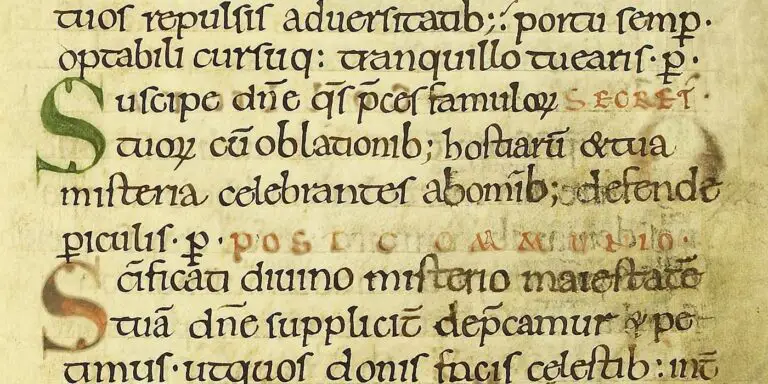 tuos repulsis aduersitatib;: portu semp̱.
optabili cursuq: tranquillo tuearis. p̱.
Suscipe dn̄e q̄s p̄ces famuloꝝ SECRET.
tuoꝝ cū oblationib; hostiarū & tua
misteria celebrantes abom̄ib; defende
ꝑiculis. ꝑ. POSTCOMMUNIO.
Sc̄ificati diuino misterio maiestatē
tuā dn̄e suppliciť dep̄camur & pe
timus. utquos donis facis celestib: int̄